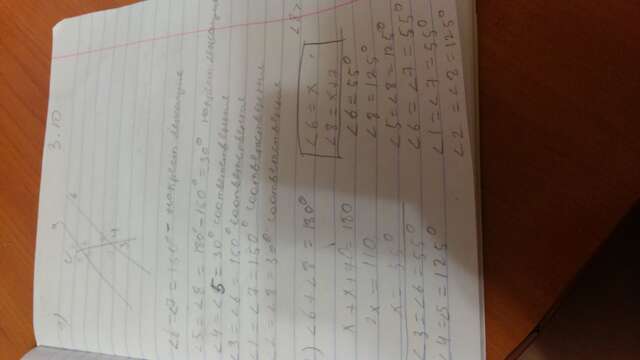 3.10
а)
∠6=∠7=150° - накрест лежащие
∠5=∠8=180°-150°=30° накрест лежащие
∠4=∠5=30° соответственные
∠3=∠6=150° соответственные
∠1=∠7=150° соответственные
∠2=∠8=30° соответственные
) ∠6+∠8=180°
x+x+70=180
2x=110
x=55°
∠3=∠6=55°
∠4=∠5=125°
∠8>
∠6=x
∠8=x+7
∠6=55°
∠8=125°
∠5=∠8=125°
∠6=∠7=55°
∠1=∠7=55°
∠2=∠8=125°